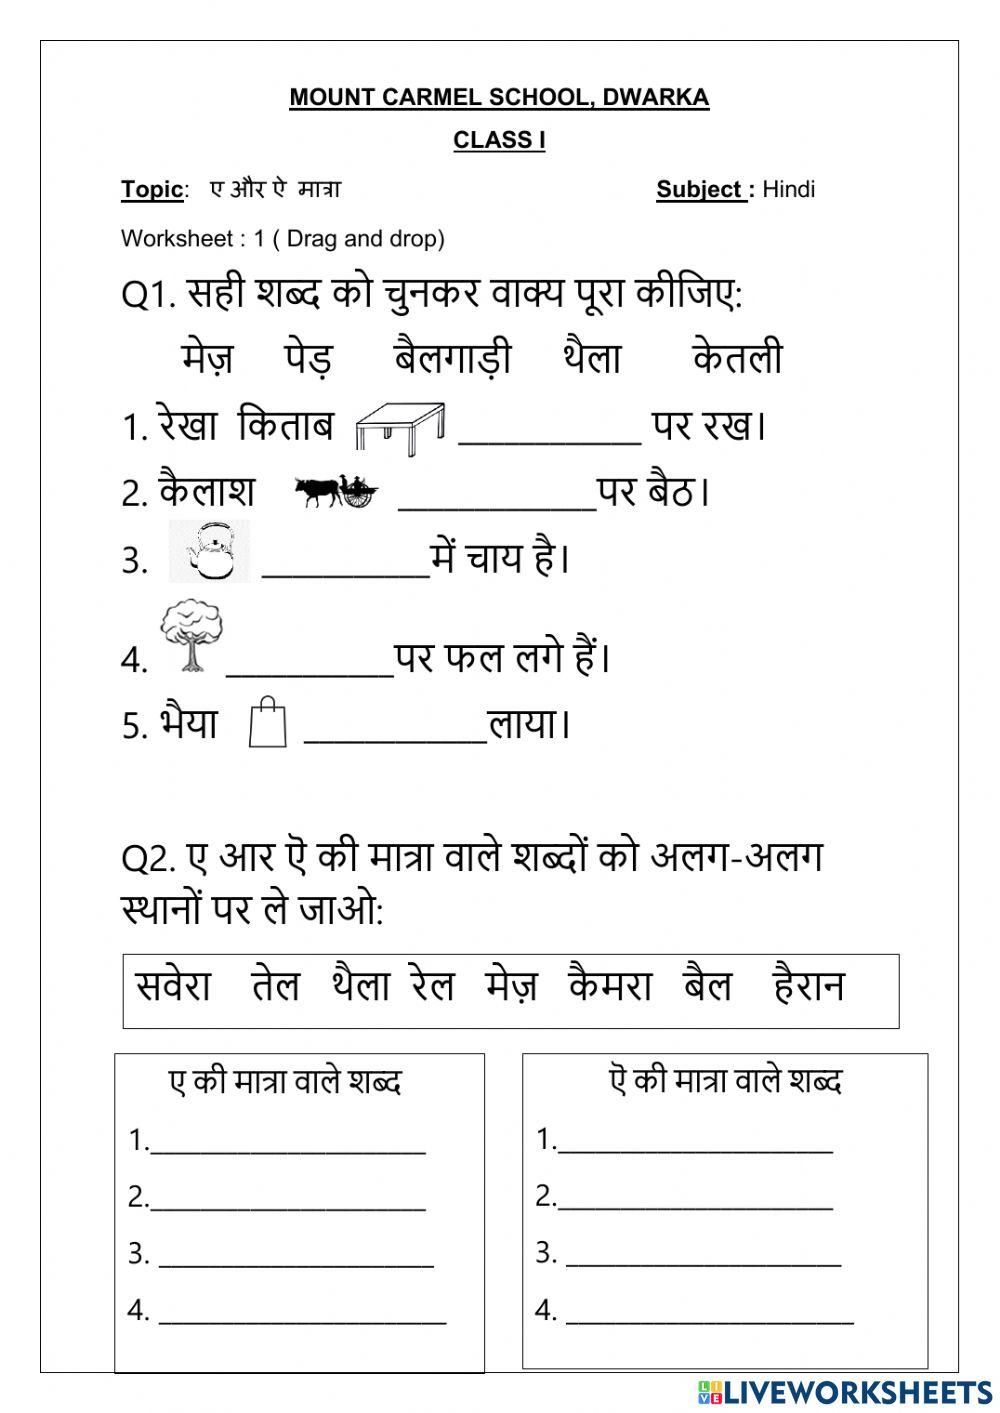 MOUNT CARMEL SCHOOL, DWARKA
CLASS I
Topic: ए और ऐ मात्रा Subject : Hindi
Worksheet : 1 ( Drag and drop)
Q1. सही शब्द को चुनकर वाक्य पूरा कीजिए:
मेज़ पेड़ बैलगाड़ी थैला केतली
1. रेखा किताब ____________ पर रख।
2. कैलाश _____________पर बैठ।
3. ___________में चाय है।
4. ___________पर फल लगे हैं।
5. भैया ____________लाया।
Q2. ए आर ऎ की मात्रा वाले शब्दों को अलग-अलग
स्थानों पर ले जाओ:
सवेरा तेल थैला रेल मेज़ कैमरा बैल हैरान
ए की मात्रा वाले शब्द
1.______________________
2.______________________
3. ______________________
4. _______________________
ऎ की मात्रा वाले शब्द
1.______________________
2.______________________
3. ______________________
4. _______________________
LIVEWORKSHEETS